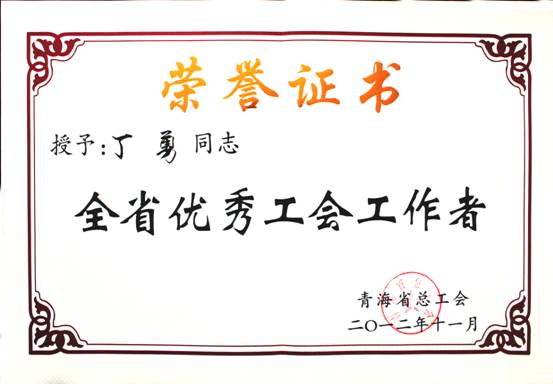 荣誉证书
授予:丁 勇 同志
全省优秀工会工作者
青海省总工会
二〇一二年十一月